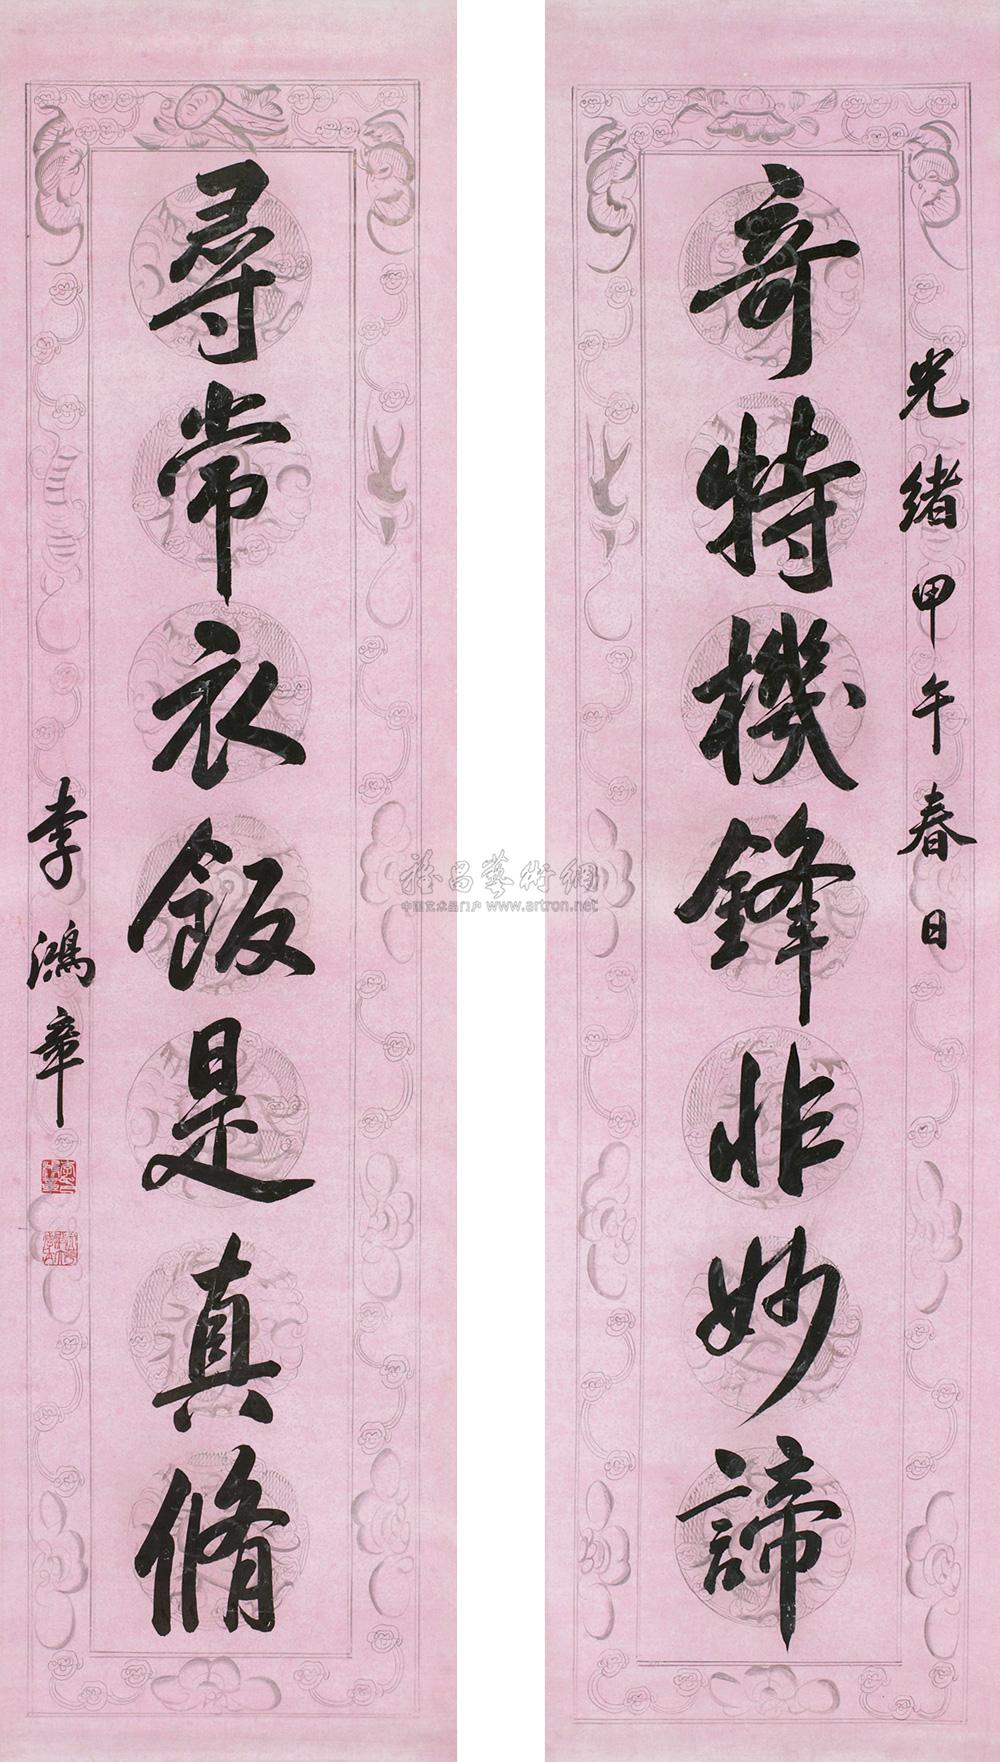 光緒甲午春日
奇特機鋒非妙諦
尋常衣飯是真脩
李鴻章
雅昌藝術網
中国艺术品门户 www.artron.net